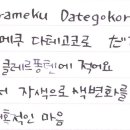 rameku Dategokor
메쿠 다테고코로 だ
클레르퐁텐에 적어요
서 자색으로 색변화를
혹적인 마음